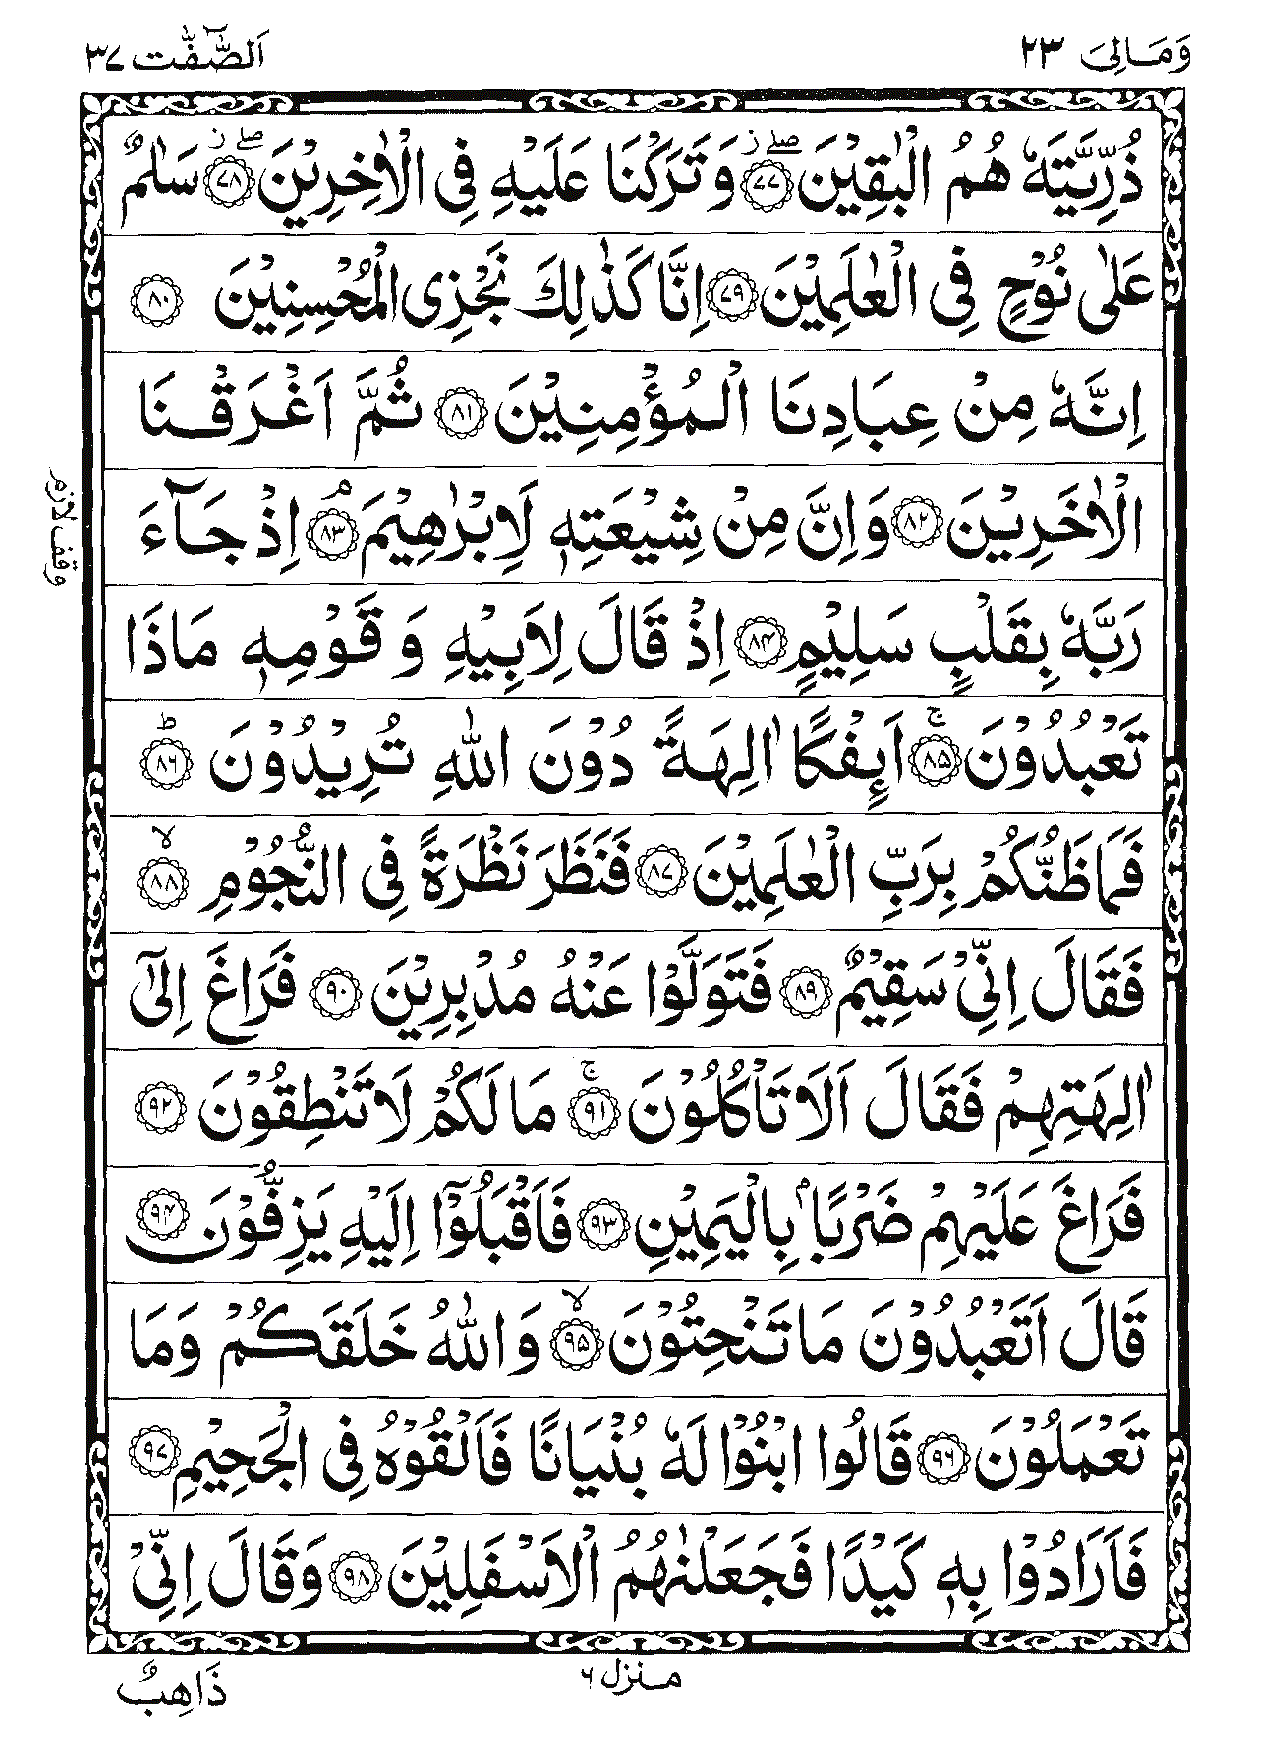 وَمَالِیَ ٢٣
اَلصّٰٓفّٰت ٣٧
ذُرِّيَّتَهٗ هُمُ الْبٰقِيْنَ ۖۚ ز ﴿٧٧﴾ وَ تَرَكْنَا عَلَيْهِ فِى الْاٰخِرِيْنَ ۖ ز ﴿٧٨﴾ سَلٰمٌ
عَلٰى نُوْحٍ فِى الْعٰلَمِيْنَ ﴿٧٩﴾ اِنَّا كَذٰلِكَ نَجْزِى الْمُحْسِنِيْنَ ﴿٨٠﴾
اِنَّهٗ مِنْ عِبَادِنَا الْمُؤْمِنِيْنَ ﴿٨١﴾ ثُمَّ اَغْرَقْنَا
الْاٰخَرِيْنَ ﴿٨٢﴾ وَاِنَّ مِنْ شِيْعَتِهٖ لَاِبْرٰهِيْمَ ۘ ﴿٨٣﴾ اِذْ جَآءَ
وقف لازم
رَبَّهٗ بِقَلْبٍ سَلِيْمٍ ﴿٨٤﴾ اِذْ قَالَ لِاَبِيْهِ وَ قَوْمِهٖ مَاذَا
تَعْبُدُوْنَ ۚ ﴿٨٥﴾ اَئِفْكًا اٰلِهَةً دُوْنَ اللّٰهِ تُرِيْدُوْنَ ؕ ﴿٨٦﴾
فَمَا ظَنُّكُمْ بِرَبِّ الْعٰلَمِيْنَ ﴿٨٧﴾ فَنَظَرَ نَظْرَةً فِى النُّجُوْمِ ۙ ﴿٨٨﴾
فَقَالَ اِنِّىْ سَقِيْمٌ ﴿٨٩﴾ فَتَوَلَّوْا عَنْهُ مُدْبِرِيْنَ ﴿٩٠﴾ فَرَاغَ اِلٰٓى
اٰلِهَتِهِمْ فَقَالَ اَلَا تَاْكُلُوْنَ ۚ ﴿٩١﴾ مَا لَكُمْ لَا تَنْطِقُوْنَ ﴿٩٢﴾
فَرَاغَ عَلَيْهِمْ ضَرْبًاۢ بِالْيَمِيْنِ ﴿٩٣﴾ فَاَقْبَلُوْٓا اِلَيْهِ يَزِفُّوْنَ ﴿٩٤﴾
قَالَ اَتَعْبُدُوْنَ مَا تَنْحِتُوْنَ ۙ ﴿٩٥﴾ وَاللّٰهُ خَلَقَكُمْ وَمَا
تَعْمَلُوْنَ ﴿٩٦﴾ قَالُوا ابْنُوْا لَهٗ بُنْيَانًا فَاَلْقُوْهُ فِى الْجَحِيْمِ ﴿٩٧﴾
فَاَرَادُوْا بِهٖ كَيْدًا فَجَعَلْنٰهُمُ الْاَسْفَلِيْنَ ﴿٩٨﴾ وَقَالَ اِنِّىْ
مـنزل ٦
ذَاهِبٌ